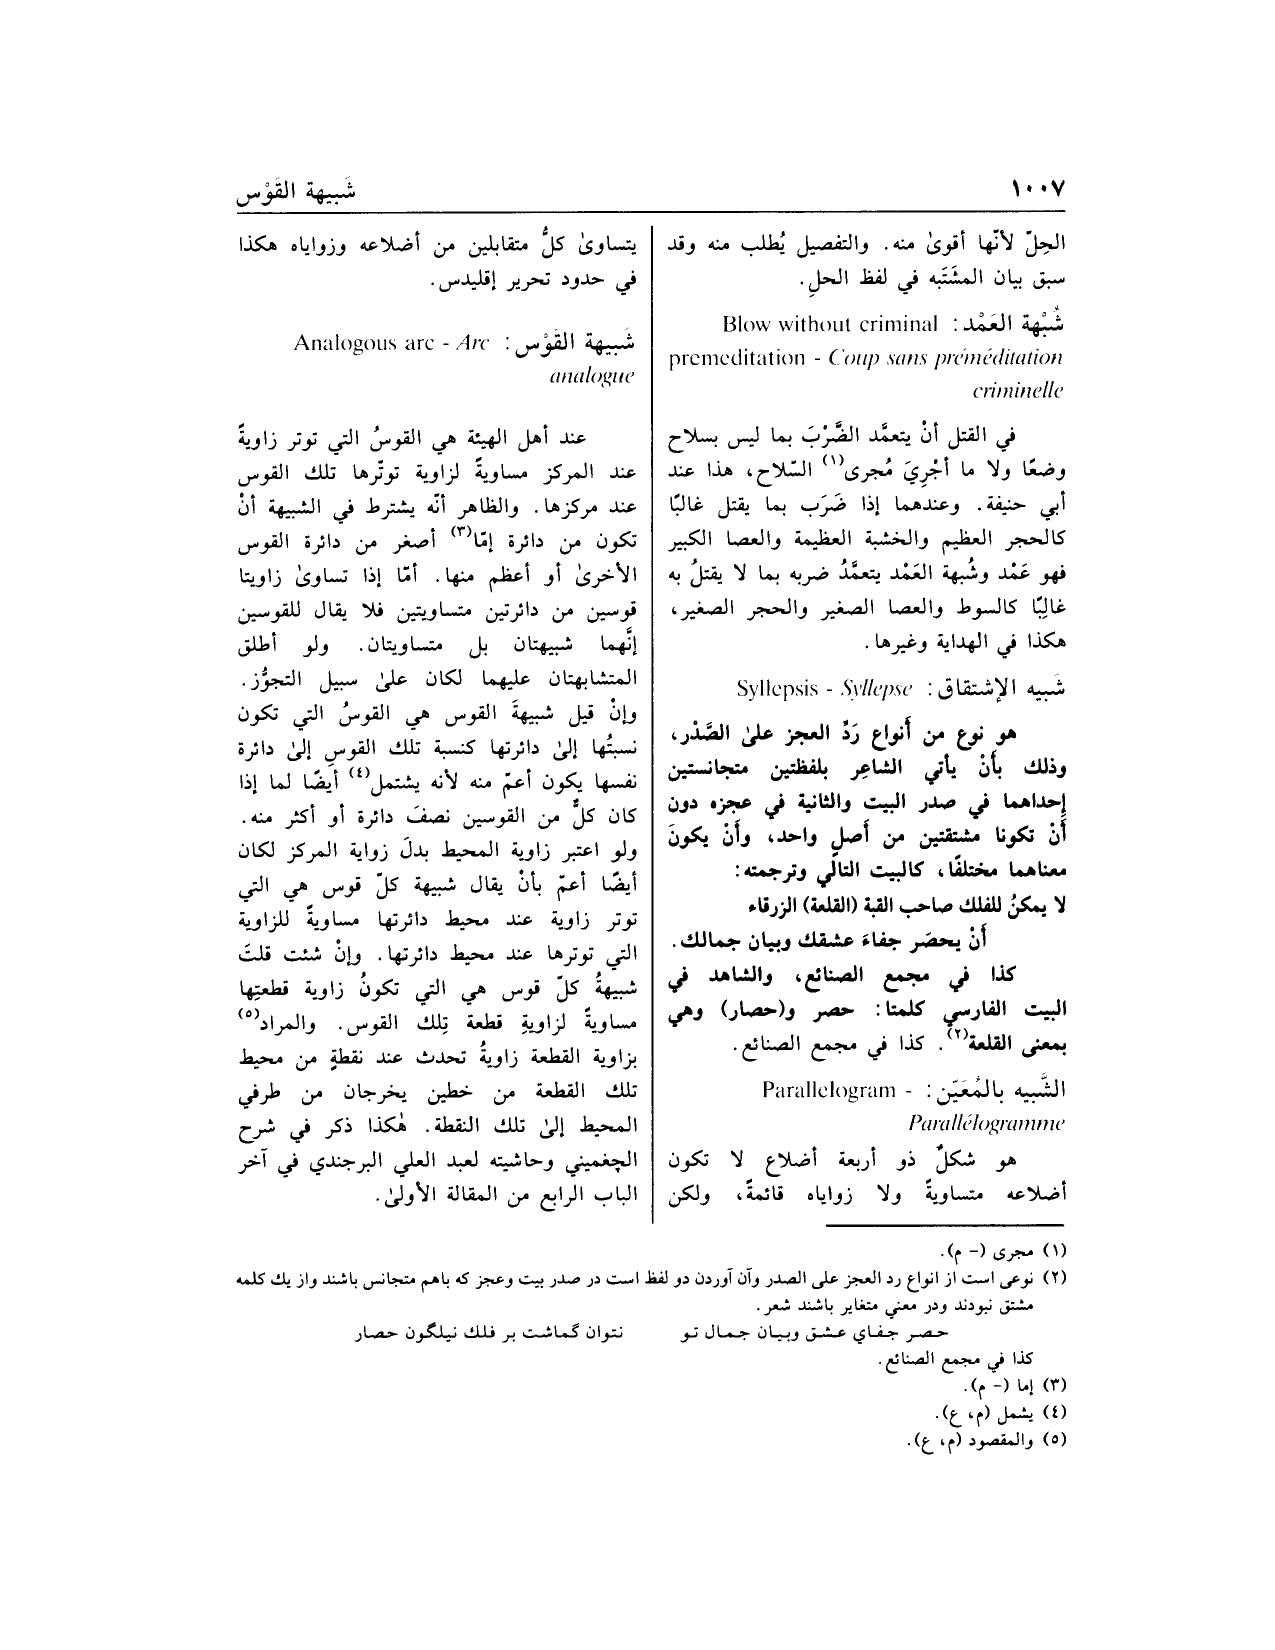 ١٠٠٧
شَبيهة القَوْس
الحِلّ لأنّها أقوىٰ منه. والتفصيل يُطلب منه وقد
سبق بيان المشَتَبه في لفظ الحلِ.
شُبْهة العَمْد: Blow without criminal
premeditation - Coup sans préméditation
criminelle
في القتل أنْ يتعمَّد الضَّرْبَ بما ليس بسلاح
وضعًا ولا ما أجْرِيَ مُجرى(١) السّلاح، هذا عند
أبي حنيفة. وعندهما إذا ضَرَب بما يقتل غالبًا
كالحجر العظيم والخشبة العظيمة والعصا الكبير
فهو عَمْد وشُبهة العَمْد يتعمَّدُ ضربه بما لا يقتلُ به
غالِبًا كالسوط والعصا الصغير والحجر الصغير،
هكذا في الهداية وغيرها.
شَبيه الإشتقاق: Syllepsis - Syllepse
هو نوع من أَنواع رَدِّ العجز علىٰ الصَّدْر،
وذلك بأَنْ يأتي الشاعِر بلفظتين متجانستين
إحداهما في صدر البيت والثانية في عجزه دون
أَنْ تكونا مشتقتين من أَصلٍ واحد، وأَنْ يكونَ
معناهما مختلفًا، كالبيت التالي وترجمته:
لا يمكنُ للفلك صاحب القبة (القلعة) الزرقاء
أَنْ يحصَر جفاءَ عشقك وبيان جمالك.
كذا في مجمع الصنائع، والشاهد في
البيت الفارسي كلمتا: حصر و(حصار) وهي
بمعنى القلعة(٢). كذا في مجمع الصنائع.
الشَّبيه بالمُعَيّن: Parallelogram -
Parallélogramme
هو شكلٌ ذو أربعة أضلاع لا تكون
أضلاعه متساويةً ولا زواياه قائمةً، ولكن
يتساوىٰ كلُّ متقابلين من أضلاعه وزواياه هكذا
في حدود تحرير إقليدس.
شَبيهة القَوْس: Analogous arc - Arc
analogue
عند أهل الهيئة هي القوسُ التي توتر زاويةً
عند المركز مساويةً لزاوية توتّرها تلك القوس
عند مركزها. والظاهر أنّه يشترط في الشبيهة أنْ
تكون من دائرة إمّا(٣) أصغر من دائرة القوس
الأخرىٰ أو أعظم منها. أمّا إذا تساوىٰ زاويتا
قوسين من دائرتين متساويتين فلا يقال للقوسين
إنَّهما شبيهتان بل متساويتان. ولو أطلق
المتشابهتان عليهما لكان علىٰ سبيل التجوُّز.
وإنْ قيل شبيهةَ القوس هي القوسُ التي تكون
نسبتُها إلىٰ دائرتها كنسبة تلك القوسِ إلىٰ دائرة
نفسها يكون أعمّ منه لأنه يشتمل(٤) أيضًا لما إذا
كان كلٌّ من القوسين نصفَ دائرة أو أكثر منه.
ولو اعتبر زاوية المحيط بدلَ زواية المركز لكان
أيضًا أعمّ بأنْ يقال شبيهة كلّ قوس هي التي
توتر زاوية عند محيط دائرتها مساويةً للزاوية
التي توترها عند محيط دائرتها. وإنْ شئت قلتَ
شبيهةُ كلّ قوس هي التي تكونُ زاوية قطعتِها
مساويةً لزاويةِ قطعة تِلك القوس. والمراد(٥)
بزاوية القطعة زاويةُ تحدث عند نقطةٍ من محيط
تلك القطعة من خطين يخرجان من طرفي
المحيط إلىٰ تلك النقطة. هٰكذا ذكر في شرح
الچغميني وحاشيته لعبد العلي البرجندي في آخر
الباب الرابع من المقالة الأولىٰ.
(١) مجرى (- م).
(٢) نوعى است از انواع رد العجز على الصدر وآن آوردن دو لفظ است در صدر بيت وعجز كه باهم متجانس باشند واز يك كلمه
مشتق نبودند ودر معني متغاير باشند شعر.
حصر جفاي عشق وبيان جمال تو نتوان گماشت بر فلك نيلگون حصار
كذا في مجمع الصنائع.
(٣) إما (- م).
(٤) يشمل (م، ع).
(٥) والمقصود (م، ع).